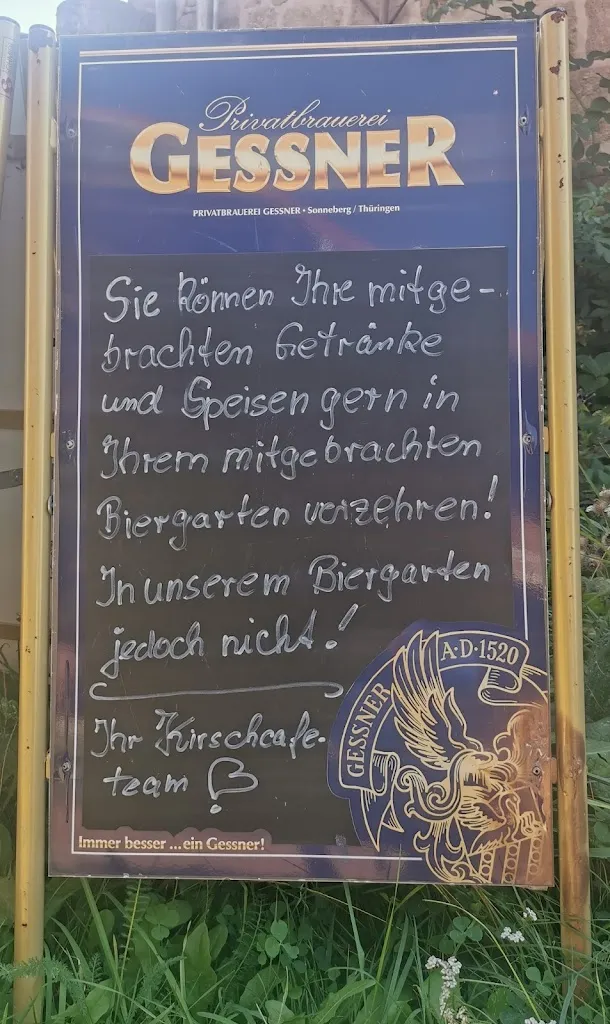 Privatbrauerei
GESSNER
PRIVATBRAUEREI GESSNER • Sonneberg / Thüringen
Sie können Ihre mitge-
brachten Getränke
und Speisen gern in
Ihrem mitgebrachten
Biergarten verzehren!
In unserem Biergarten
jedoch nicht!
Ihr Kirschcafe-
team
A·D·1520
GESSNER
Immer besser ... ein Gessner!